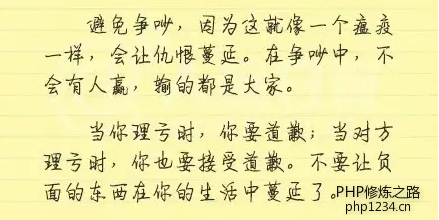 避免争吵，因为这就像一个瘟疫
一样，会让仇恨蔓延。在争吵中，不
会有人赢，输的都是大家。
当你理亏时，你要道歉；当对方
理亏时，你也要接受道歉。不要让负
面的东西在你的生活中蔓延了。
PHP修炼之路
php1234.cn